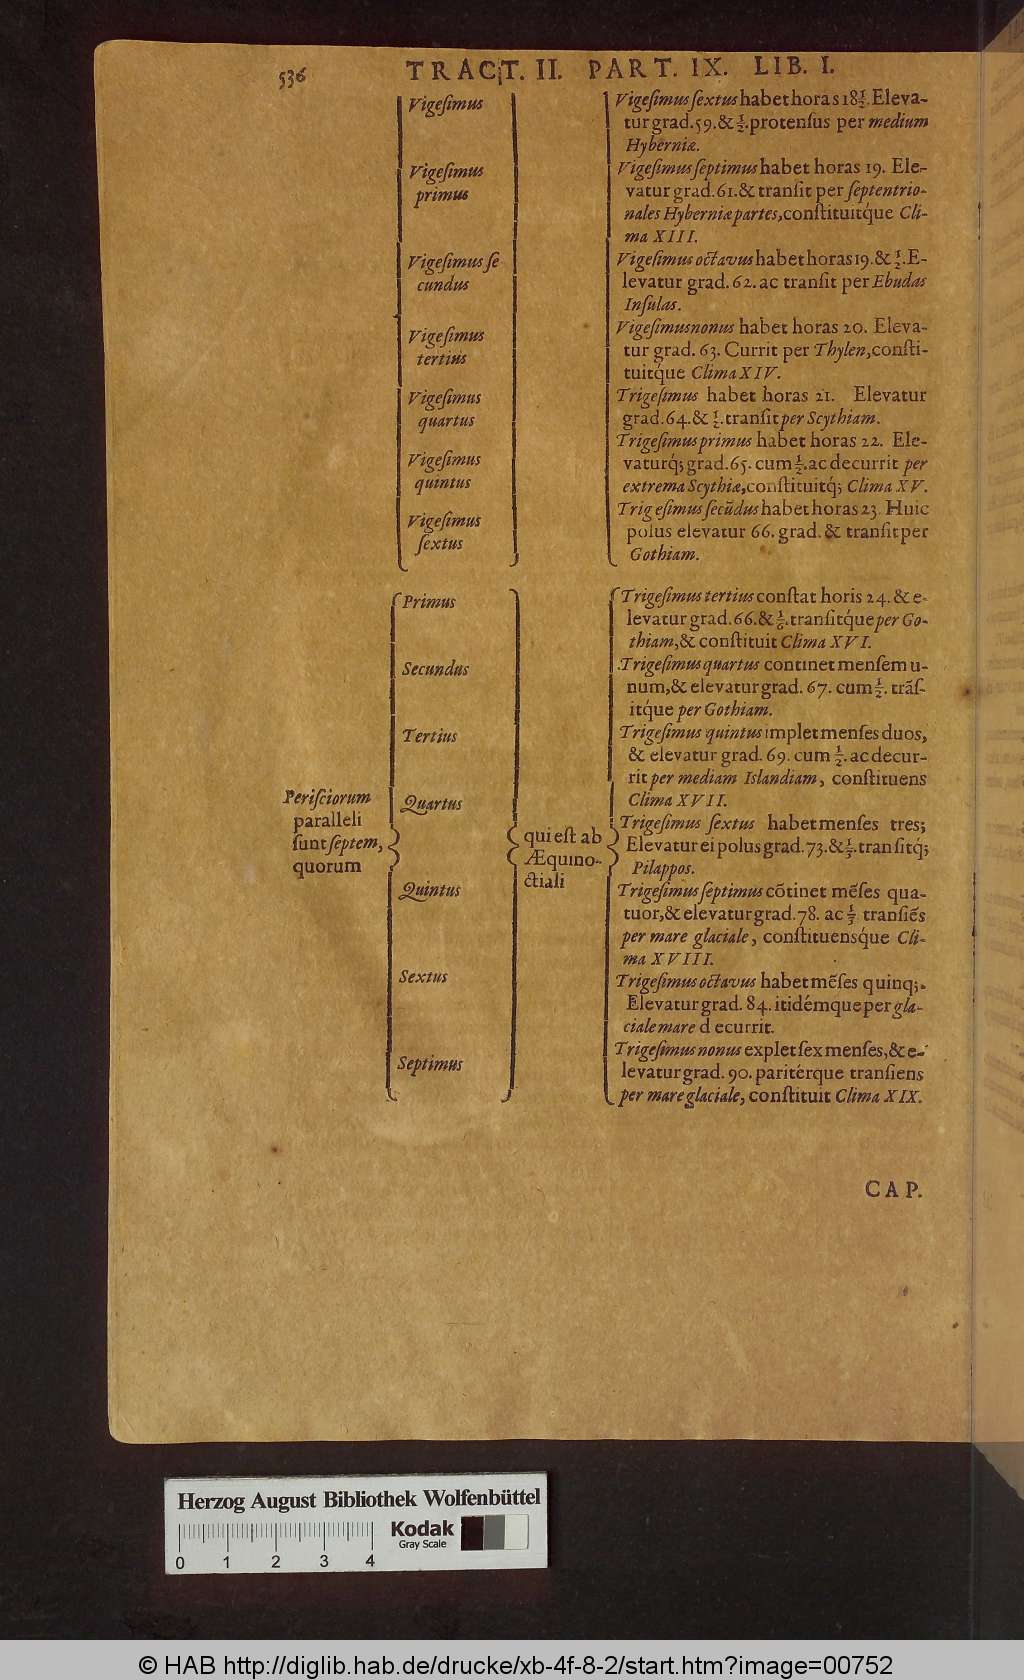 536
TRACT. II. PART. IX. LIB. I.
Vigesimus
Vigesimus
primus
Vigesimus se
cundus
Vigesimus
tertius
Vigesimus
quartus
Vigesimus
quintus
Vigesimus
sextus
Vigesimus sextus habet horas 18½. Eleva-
tur grad. 59. & ½. protensus per medium
Hyberniæ.
Vigesimus septimus habet horas 19. Ele-
vatur grad. 61. & transit per septentrio-
nales Hyberniæ partes, constituitq́ue Cli-
ma XIII.
Vigesimus octavus habet horas 19. & ½. E-
levatur grad. 62. ac transit per Ebudas
Insulas.
Vigesimus nonus habet horas 20. Eleva-
tur grad. 63. Currit per Thylen, consti-
tuitq́ue Clima XIV.
Trigesimus habet horas 21. Elevatur
grad. 64. & ½. transit per Scythiam.
Trigesimus primus habet horas 22. Ele-
vaturq́; grad. 65. cum ½. ac decurrit per
extrema Scythiæ, constituitq́; Clima XV.
Trigesimus secũdus habet horas 23. Huic
polus elevatur 66. grad. & transit per
Gothiam.
Perisciorum
paralleli
sunt septem,
quorum
Primus
Secundus
Tertius
Quartus
Quintus
Sextus
Septimus
qui est ab
Æquino-
ctiali
Trigesimus tertius constat horis 24. & e-
levatur grad. 66. & ⅙. transitq́ue per Go-
thiam, & constituit Clima XVI.
Trigesimus quartus continet mensem u-
num, & elevatur grad. 67. cum ½. trãs-
itq́ue per Gothiam.
Trigesimus quintus implet menses duos,
& elevatur grad. 69. cum ½. ac decur-
rit per mediam Islandiam, constituens
Clima XVII.
Trigesimus sextus habet menses tres;
Elevatur ei polus grad. 73. & ⅓. transitq́;
Pilappos.
Trigesimus septimus cõtinet mẽses qua-
tuor, & elevatur grad. 78. ac ⅓ transiẽs
per mare glaciale, constituensq́ue Cli-
ma XVIII.
Trigesimus octavus habet mẽses quinq;.
Elevatur grad. 84. itidémque per gla-
ciale mare decurrit.
Trigesimus nonus explet sex menses, & e-
levatur grad. 90. paritérque transiens
per mare glaciale, constituit Clima XIX.
CAP.
Herzog August Bibliothek Wolfenbüttel
Kodak
Gray Scale
0 1 2 3 4
© HAB http://diglib.hab.de/drucke/xb-4f-8-2/start.htm?image=00752